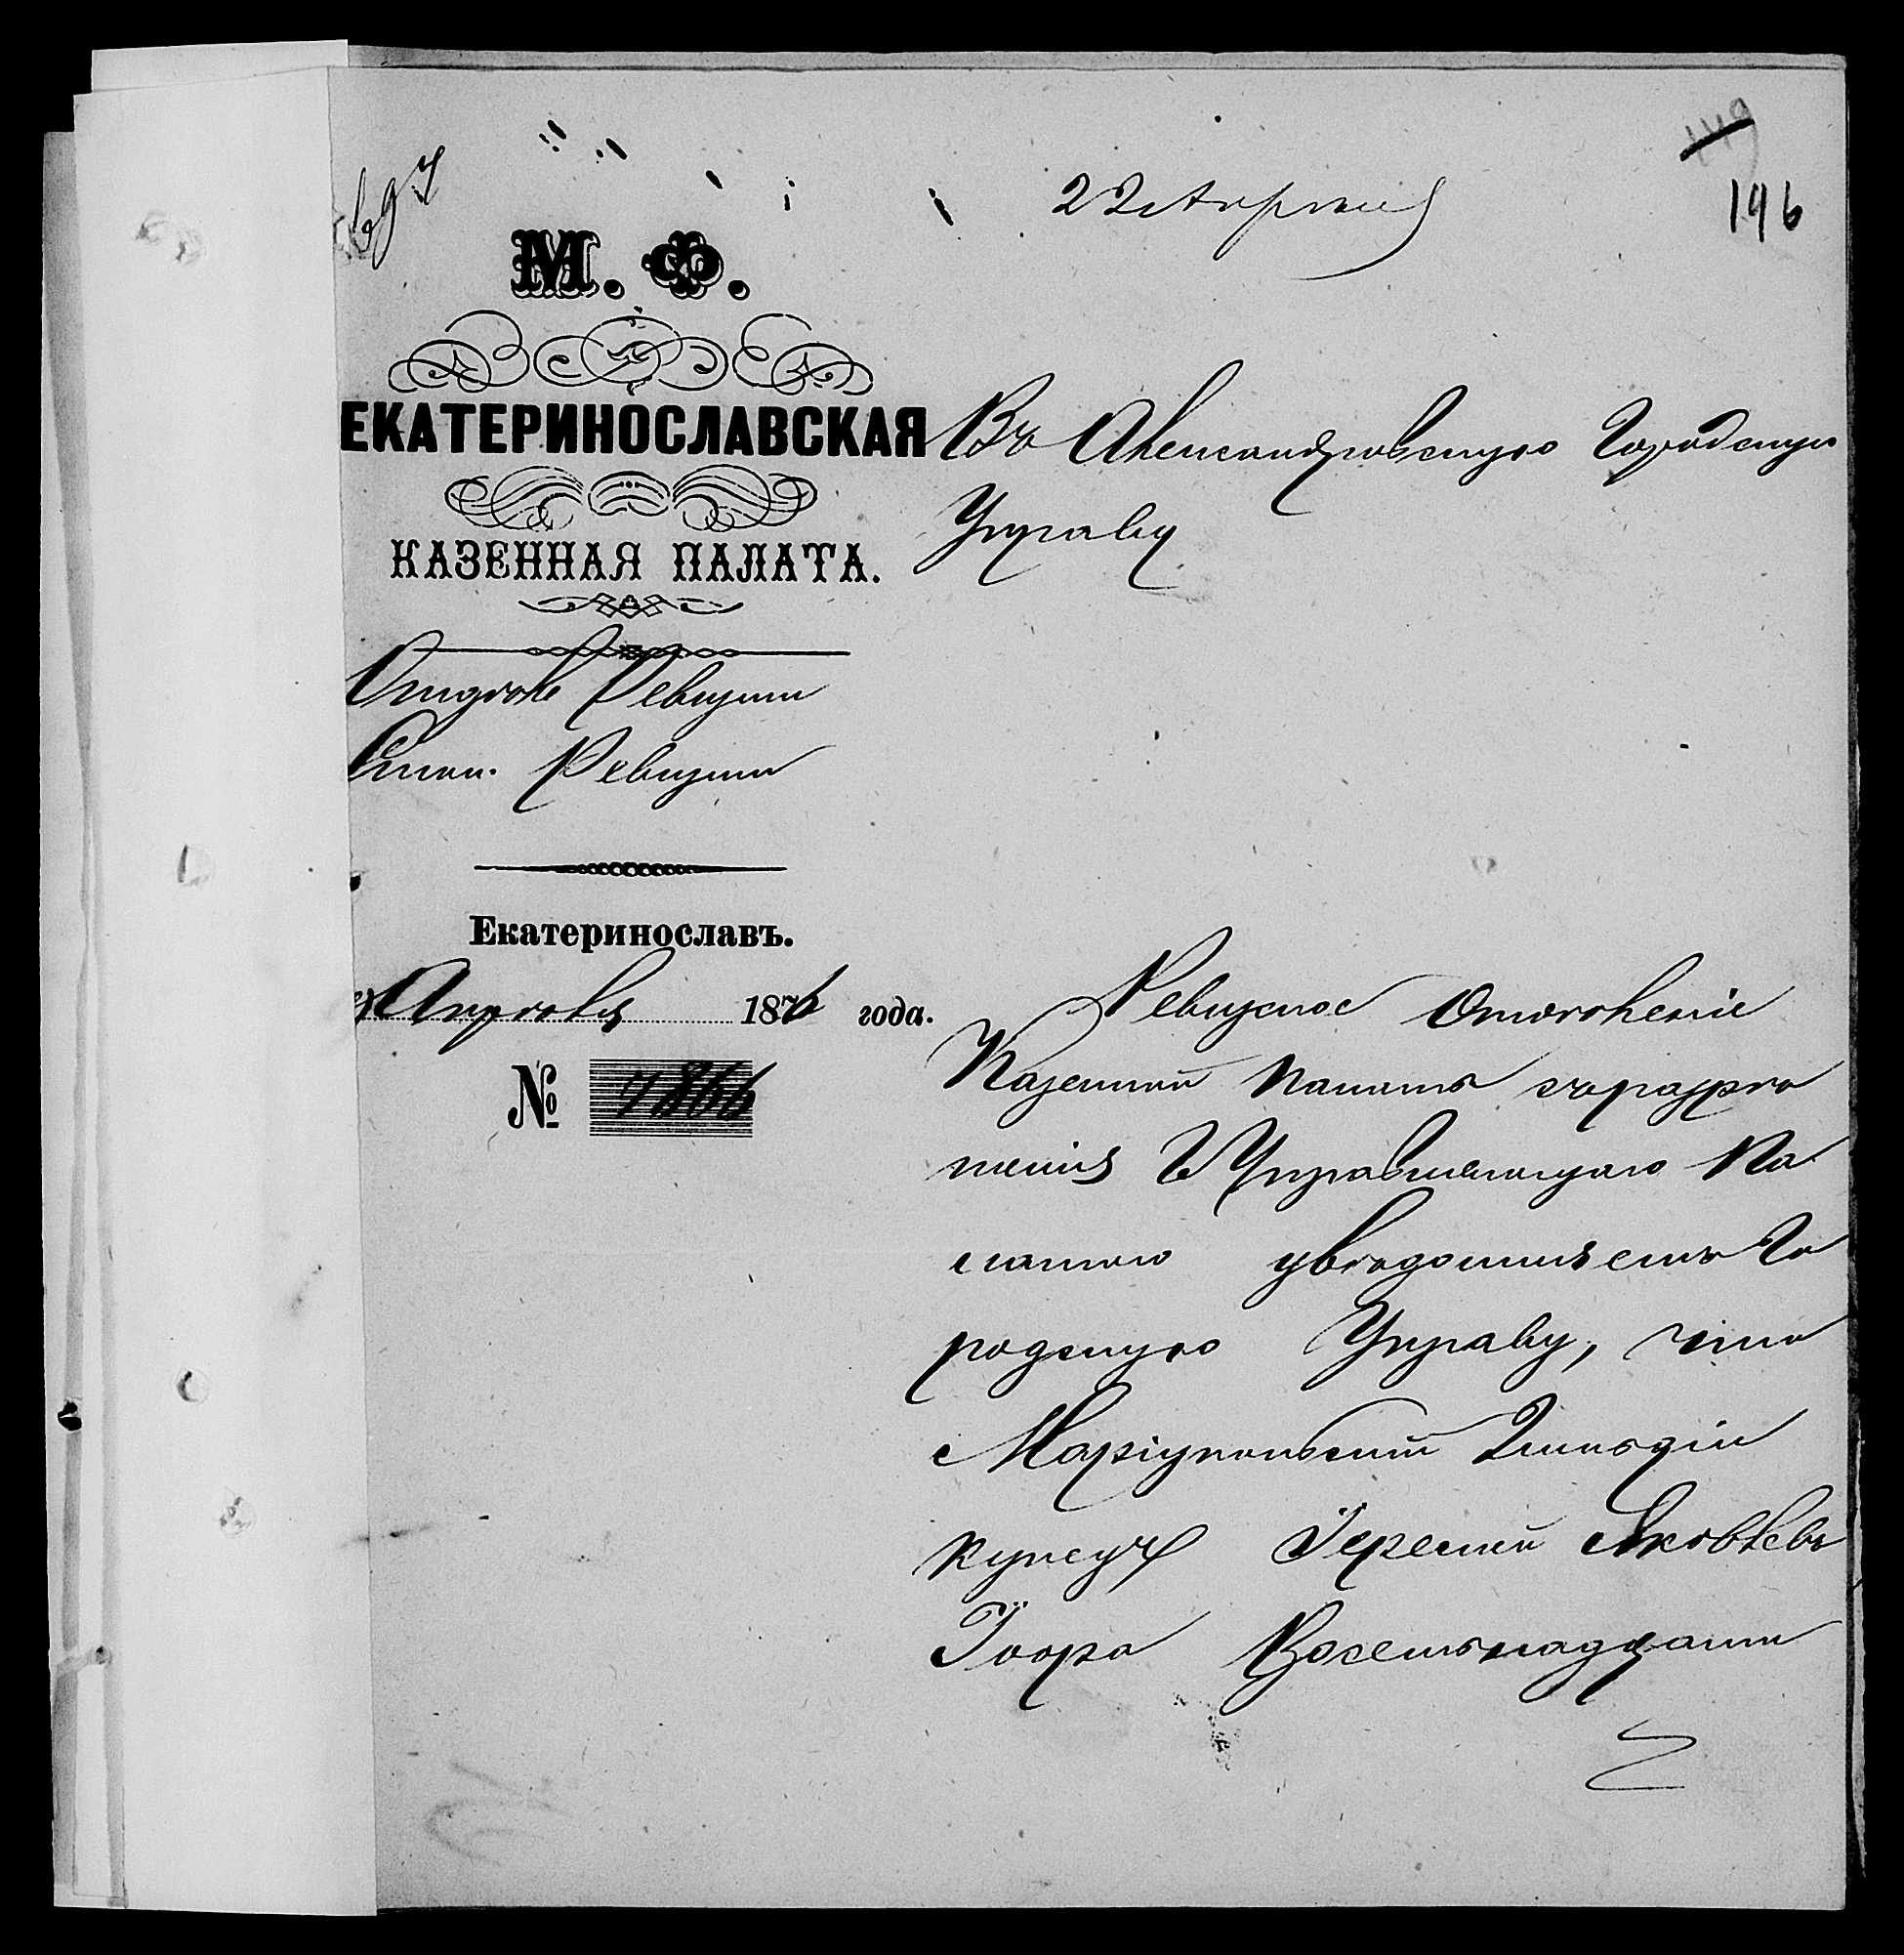 149
22 Апреля
146
М. Ф.
ЕКАТЕРИНОСЛАВСКАЯ
КАЗЕННАЯ ПАЛАТА.
Отдѣлъ Ревизии
Стол. Ревизии
Екатеринославъ.
Апрѣля 1876 года.
№ 4866
Въ Александровскую Городскую
Управу
Ревизное Отдѣленіе
Казенной Палаты съ разрѣ
шенія Г. Управляющаго Па
латою увѣдомляетъ Го
родскую Управу, что
Маріупольскій 2 гильдіи
купецъ Іеремій Яковлевъ
Гоора Восемьнадцати